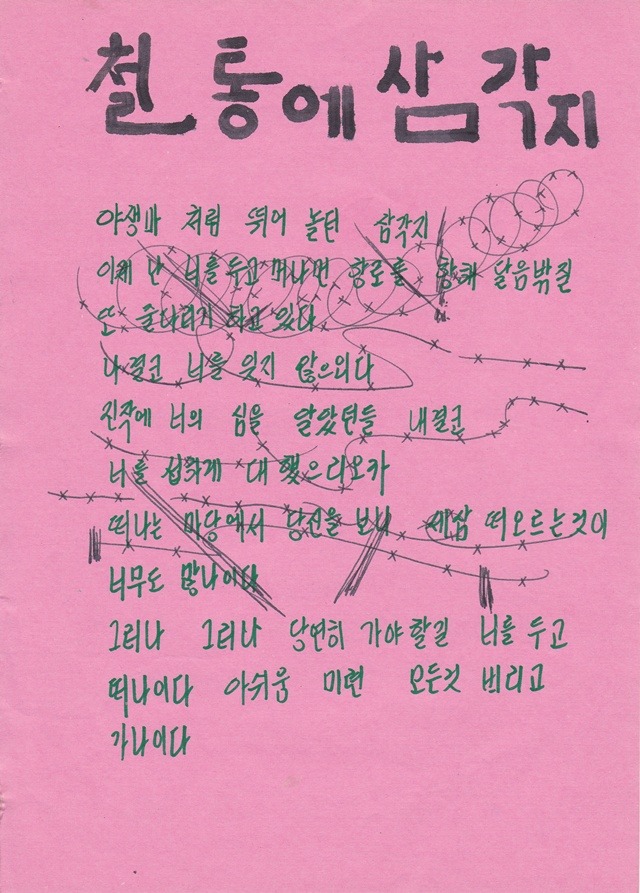 철통에 삼각지
야생마 처럼 뛰어 놀던 삼각지
이제 난 너를 두고 떠나면 항로를 향해 달음밖질
또 줄다리기 하고 있다
나 결코 너를 잊지 않으리다
진작에 너의 심을 알았던들 내 결코
너를 섭하게 대했으리오카
떠나는 마당에서 당신을 보니 새삼 떠오르는것이
너무도 많나이다
그러나 그러나 당연히 가야할길 너를 두고
떠나이다 아쉬움 미련 모든것 버리고
가나이다